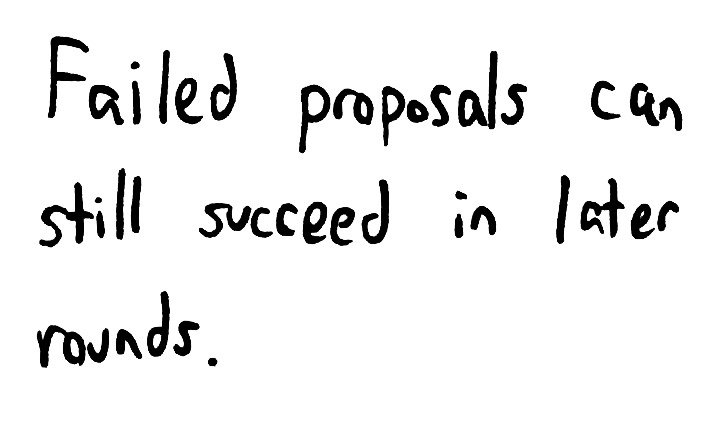 Failed proposals can
still succeed in later
rounds.